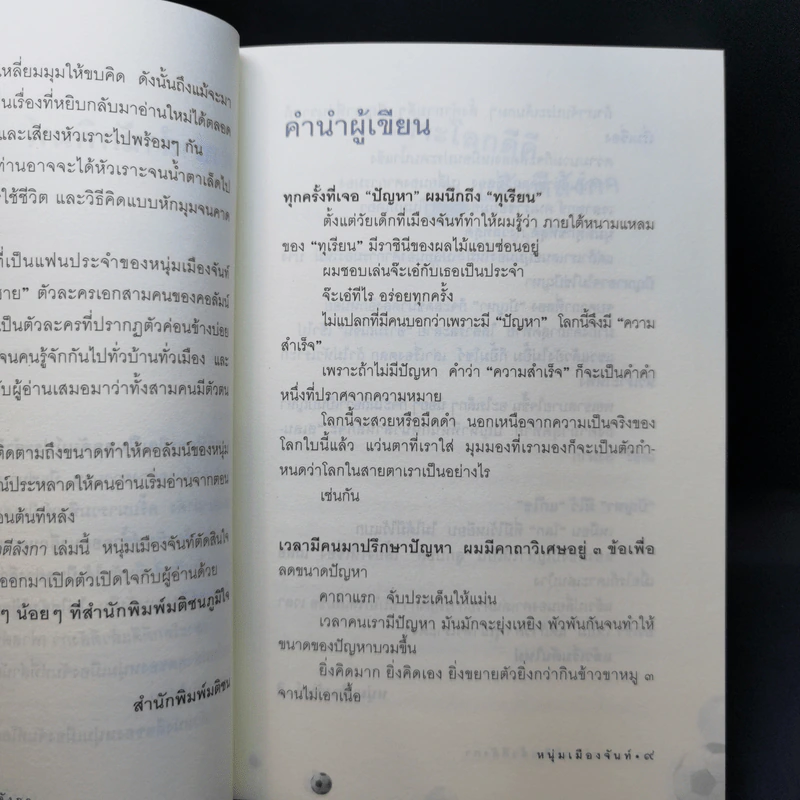 เหลี่ยมมุมให้ขบคิด ดังนั้นถึงแม้จะมา
นเรื่องที่หยิบกลับมาอ่านใหม่ได้ตลอด
และเสียงหัวเราะไปพร้อมๆ กัน
ท่านอาจจะได้หัวเราะจนน้ำตาเล็ดไป
ใช้ชีวิต และวิธีคิดแบบหักมุมจนคาด
ที่เป็นแฟนประจำของหนุ่มเมืองจันท์
ชาย” ตัวละครเอกสามคนของคอลัมน์
เป็นตัวละครที่ปรากฏตัวค่อนข้างบ่อย
จนคนรู้จักกันไปทั่วบ้านทั่วเมือง และ
ับผู้อ่านเสมอมาว่าทั้งสามคนมีตัวตน
ติดตามถึงขนาดทำให้คอลัมน์ของหนุ่ม
ณ์ประหลาดให้คนอ่านเริ่มอ่านจากตอน
อนต้นทีหลัง
ตีลังกา เล่มนี้ หนุ่มเมืองจันท์ตัดสินใจ
ออกมาเปิดตัวเปิดใจกับผู้อ่านด้วย
ๆ น้อยๆ ที่สำนักพิมพ์มติชนภูมิใจ
สำนักพิมพ์มติชน
คำนำผู้เขียน
ทุกครั้งที่เจอ “ปัญหา” ผมนึกถึง “ทุเรียน”
ตั้งแต่วัยเด็กที่เมืองจันท์ทำให้ผมรู้ว่า ภายใต้หนามแหลม
ของ “ทุเรียน” มีราชินีของผลไม้แอบซ่อนอยู่
ผมชอบเล่นจ๊ะเอ๋กับเธอเป็นประจำ
จ๊ะเอ๋ทีไร อร่อยทุกครั้ง
ไม่แปลกที่มีคนบอกว่าเพราะมี “ปัญหา” โลกนี้จึงมี “ความ
สำเร็จ”
เพราะถ้าไม่มีปัญหา คำว่า “ความสำเร็จ” ก็จะเป็นคำคำ
หนึ่งที่ปราศจากความหมาย
โลกนี้จะสวยหรือมืดดำ นอกเหนือจากความเป็นจริงของ
โลกใบนี้แล้ว แว่นตาที่เราใส่ มุมมองที่เรามองก็จะเป็นตัวกำ-
หนดว่าโลกในสายตาเราเป็นอย่างไร
เช่นกัน
เวลามีคนมาปรึกษาปัญหา ผมมีคาถาวิเศษอยู่ ๓ ข้อเพื่อ
ลดขนาดปัญหา
คาถาแรก จับประเด็นให้แม่น
เวลาคนเรามีปัญหา มันมักจะยุ่งเหยิง พัวพันกันจนทำให้
ขนาดของปัญหาบวมขึ้น
ยิ่งคิดมาก ยิ่งคิดเอง ยิ่งขยายตัวยิ่งกว่ากินข้าวขาหมู ๓
จานไม่เอาเนื้อ
หนุ่มเมืองจันท์ • ๙